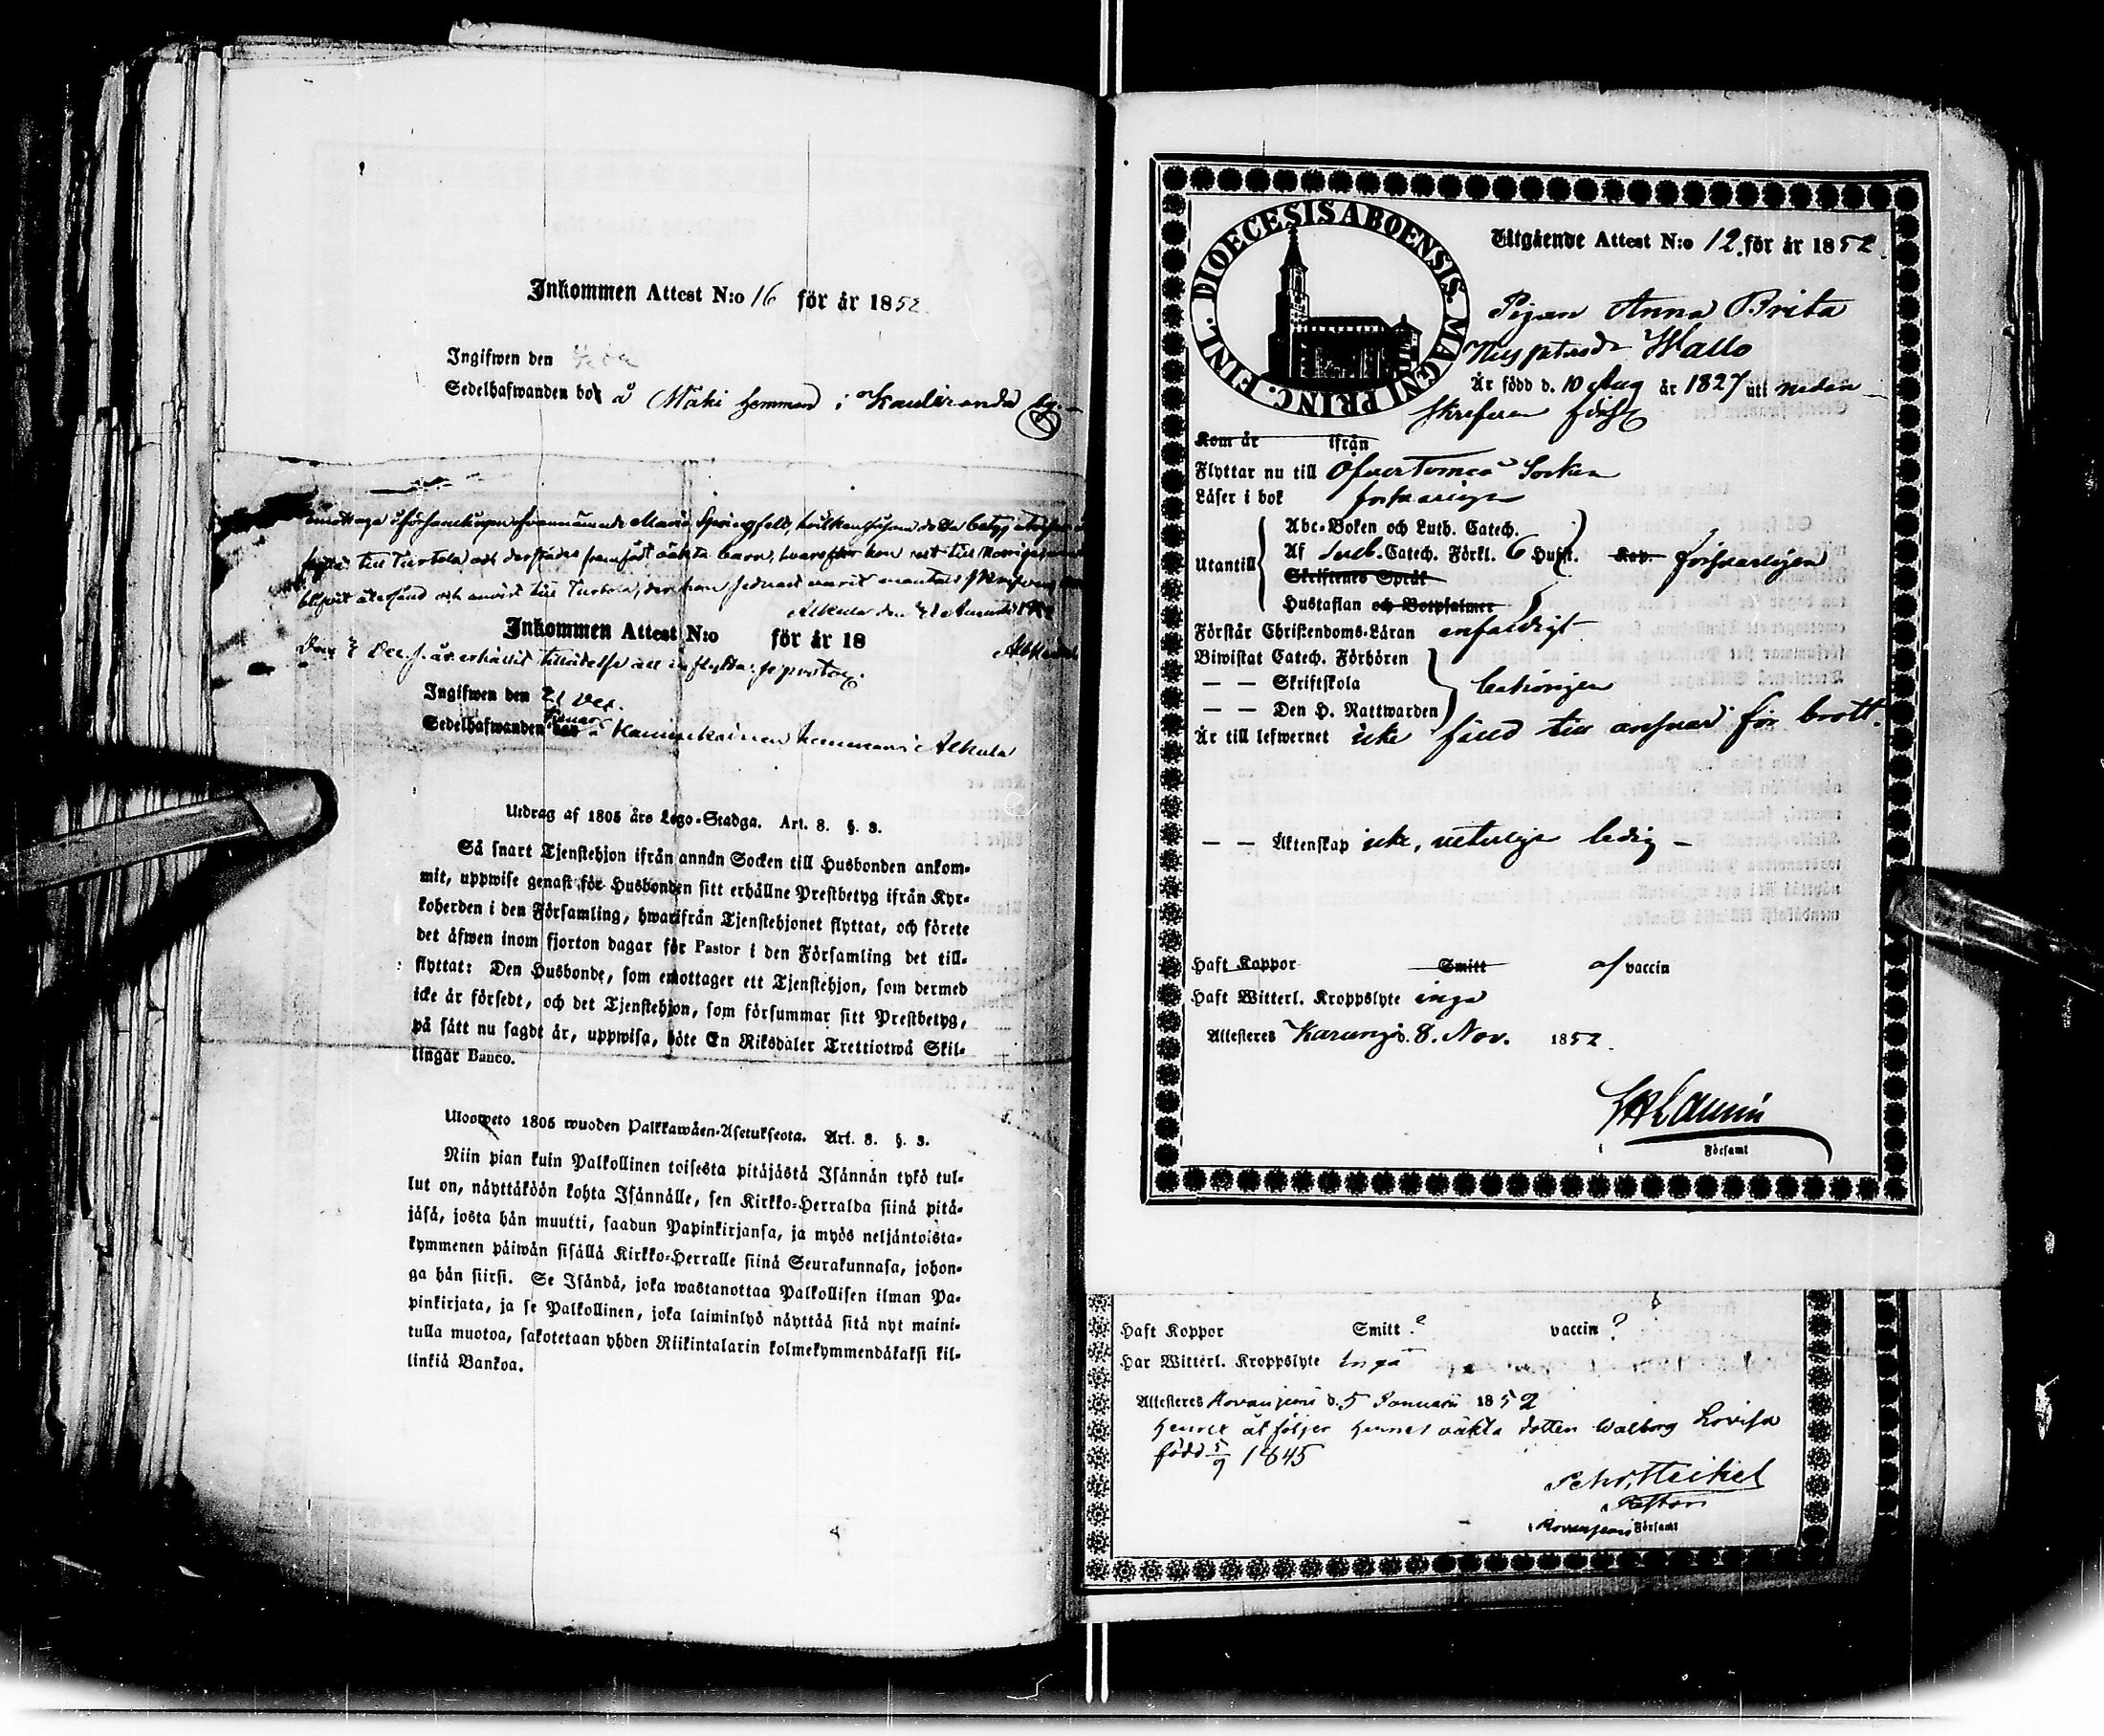 Inkommen Attest N:o 16 för år 1852.
Ingifwen den
Sedelhafwanden bor å Mäki hemman i Kauliranda by.
emottaga i församlingen ofvannämnde Maria Springfelt, hvilken
till Turtola och derstädes framfödt oäkta barn, hvarefter hon rest till Norrige
blifvit återsänd och anvist till Turtola, der hon sednast varit mantals skrifven,
Alkula den
Inkommen Attest N:o för år 18
Den Dec. s. år erhållit tillåtelse att inflytta:
Ingifwen den 21 Dec.
Sedelhafwanden å Kannukainen hemman i Alkula
Utdrag af 1805 års Lego-Stadga. Art. 8. §. 3.
Så snart Tjenstehjon ifrån annan Socken till Husbonden ankom-
mit, uppwise genast för Husbonden sitt erhållne Prestbetyg ifrån Kyr-
koherden i den Församling, hwarifrån Tjenstehjonet flyttat, och förete
det äfwen inom fjorton dagar för Pastor i den Församling det till-
flyttat: Den Husbonde, som emottager ett Tjenstehjon, som dermed
icke är försedt, och det Tjenstehjon, som försummar sitt Prestbetyg,
på sätt nu sagdt är, uppwisa, böte En Riksdaler Trettiotwå Skil-
lingar Banco.
Uloosweto 1805 wuoden Palkkawäen-Asetuksesta. Art. 8. §. 3.
Niin pian kuin Palkollinen toisesta pitäjästä Isännän tykö tul-
lut on, näyttäköön kohta Isännälle, sen Kirkko-Herralda siinä pitä-
jäsä, josta hän muutti, saadun Papinkirjansa, ja myös neljäntoista-
kymmenen päiwän sisällä Kirkko-Herralle siinä Seurakunnasa, johon-
ga hän siirsi. Se Isändä, joka wastanottaa Palkollisen ilman Pa-
pinkirjata, ja se Palkollinen, joka laiminlyö näyttää sitä nyt maini-
tulla muotoa, sakotetaan yhden Riikintalarin kolmekymmendäkaksi kil-
linkiä Bankoa.
DIOECESIS ABOENSIS. MAGNI PRINC. FINL.
Utgående Attest N:o 12. för år 1852.
Pigan Anna Brita
Wallo
Är född d. 10 Aug år 1827 uti nedan-
skrefven förs
Kom år ifrån
Flyttar nu till Öfver Torneå Socken
Läser i bok försvarligen
Utantill
Abc-Boken och Luth. Catech.
Af Sveb. Catech. Förkl. 6 Hufst. Kap. försvarligen
Skriftenes Språk
Hustaflan och Botpsalmer
Förstår Christendoms-Läran enfaldigt
Biwistat Catech. Förhören
— — Skriftskola behörigen
— — Den H. Nattwarden
Är till lefwernet icke fälld till ansvar för brott.
— — Äktenskap icke, veterligen ledig –
Haft Koppor Smitt af vaccin
Haft Witterl. Kroppslyte inga
Attesteres Karungi d. 8. Nov. 1852.
i Församl
Haft Koppor Smitt ? vaccin ?
Har Witterl. Kroppslyte inga
Attesteres Rovaniemi d. 5 Januarii 1852
Henne åtföljer hennes oäkta dotter Walborg Lovisa
född 5/9 1845
Heikel
Pastor
i Rovaniemi Församl